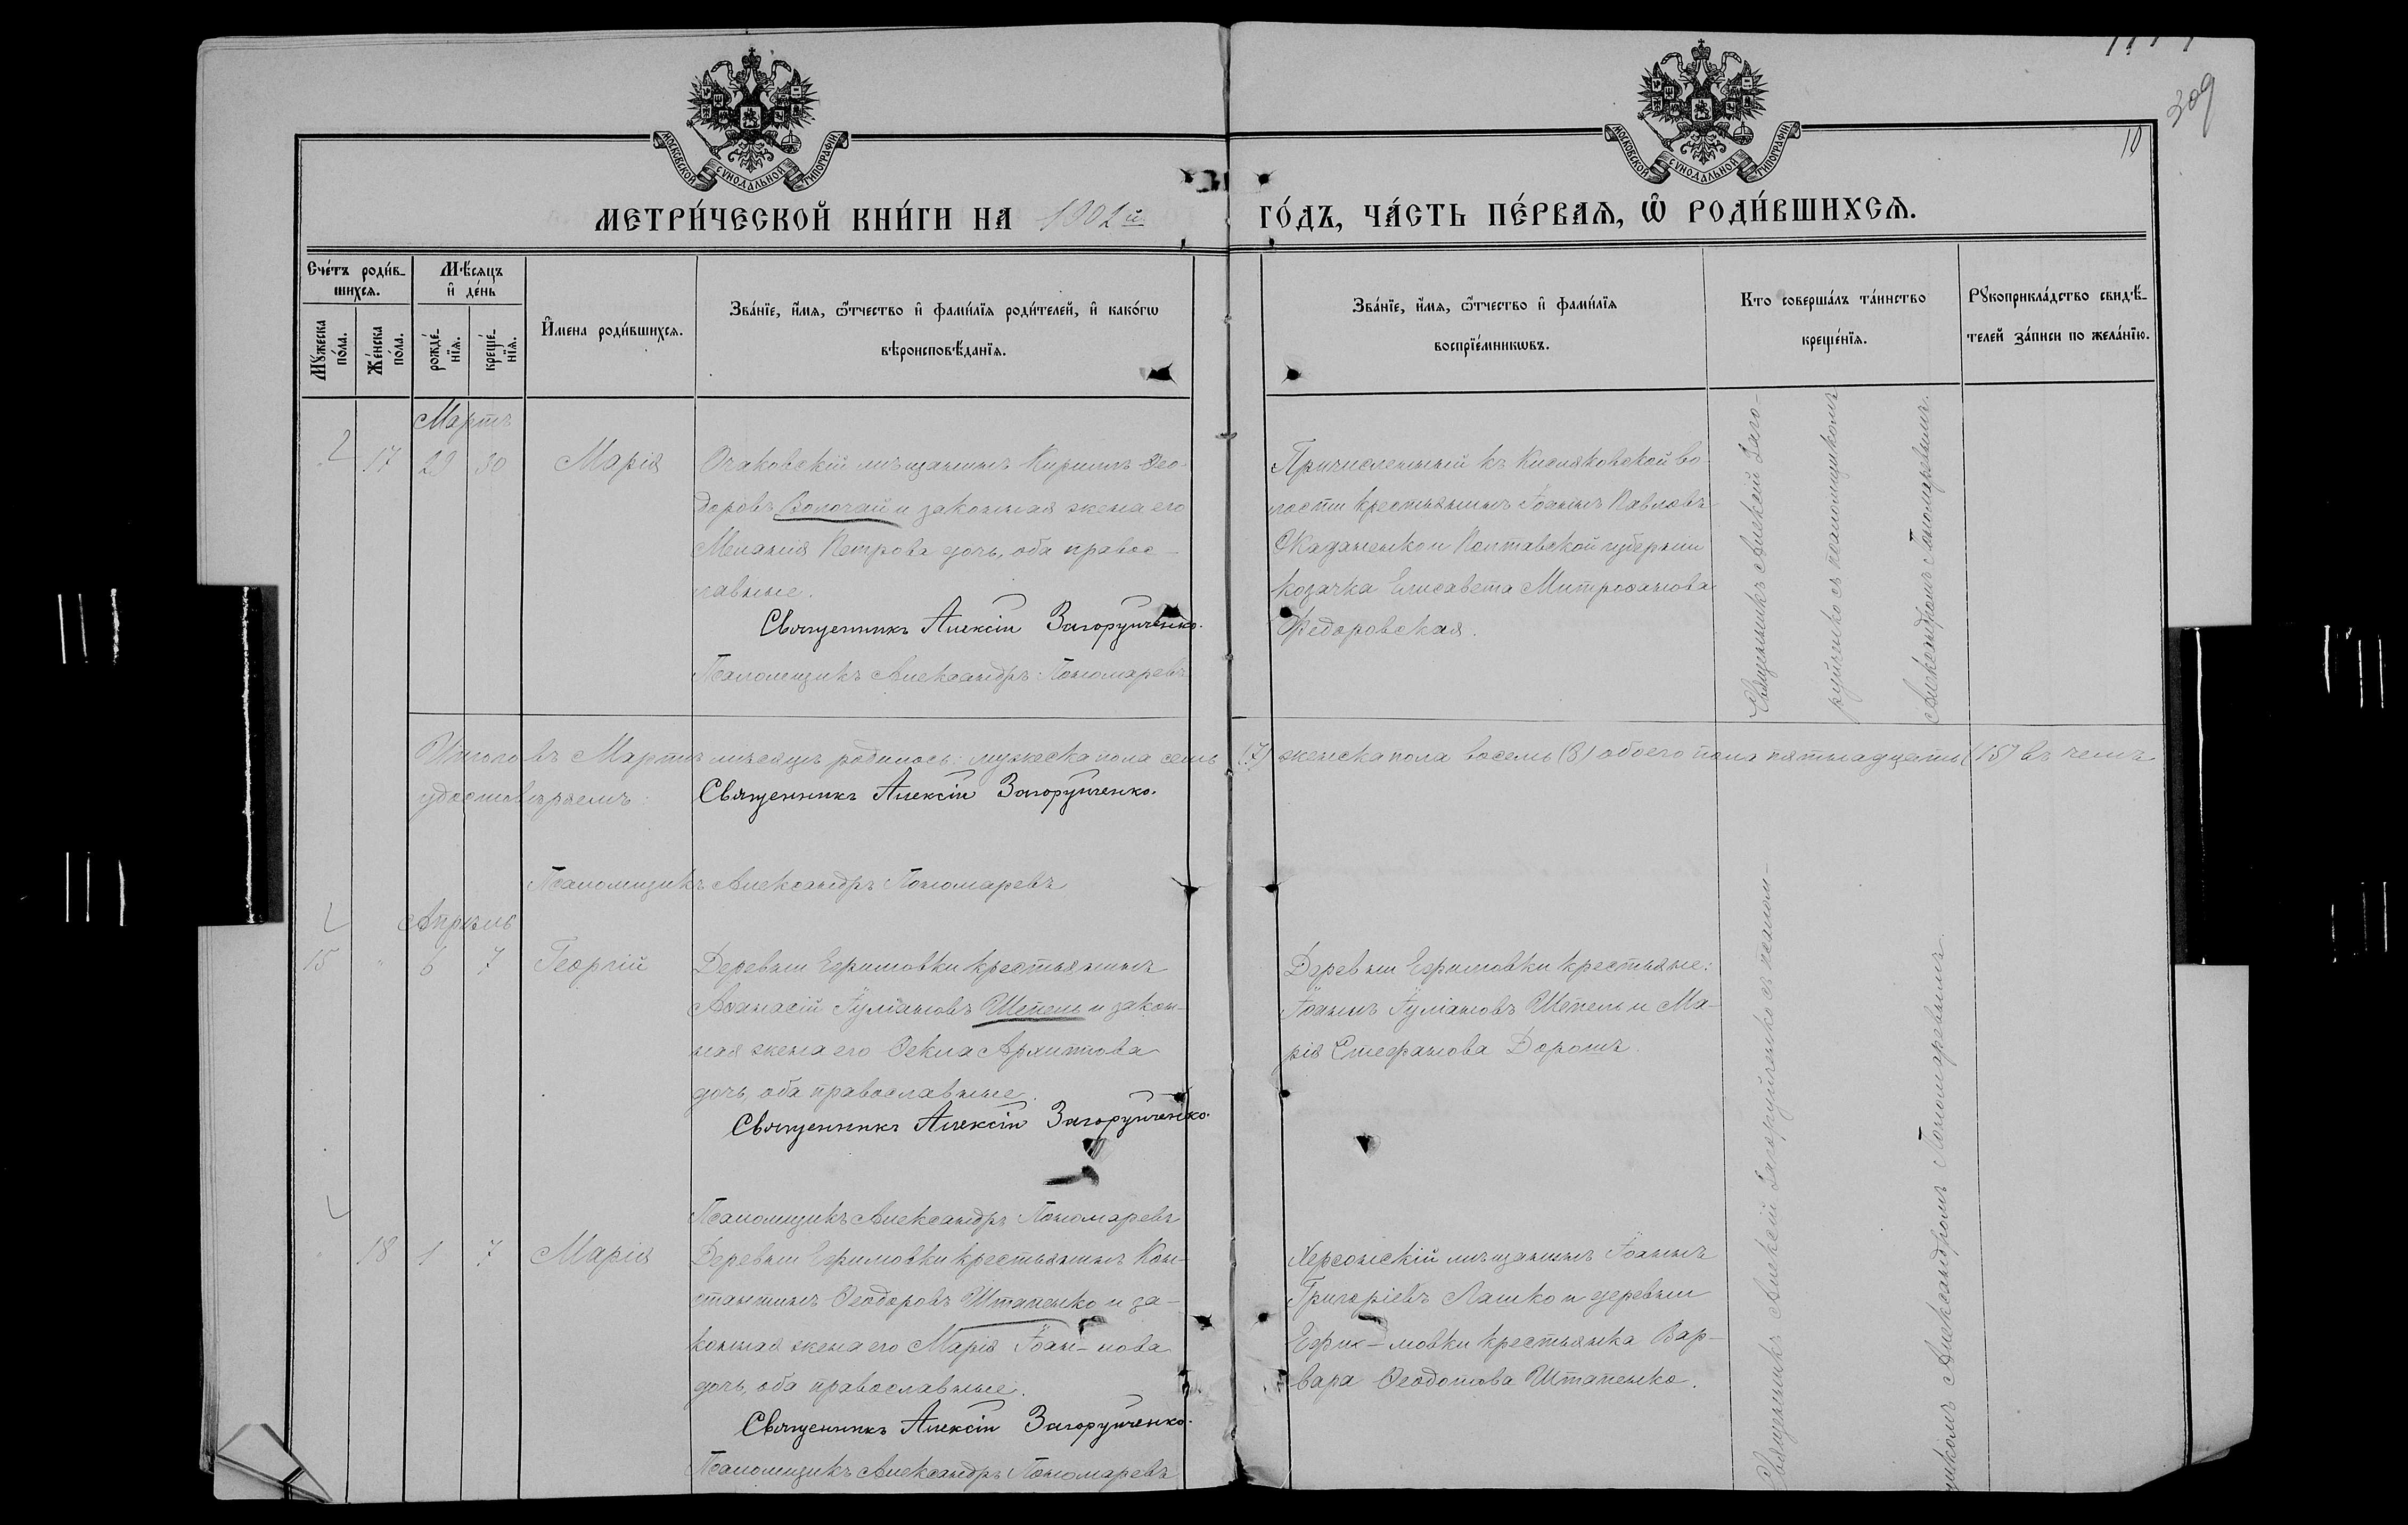 309
10
МОСКОВСКОЙ СУНОДАЛЬНОЙ ТИПОГРАФІИ
МОСКОВСКОЙ СУНОДАЛЬНОЙ ТИПОГРАФІИ
МЕТРИ́ЧЕСКОЙ КНИ́ГИ НА 1902й ГО́ДЪ, ЧА́СТЬ ПЕ́РВАѦ, Ѡ҃ РОДИ́ВШИХСѦ.
Сче́тъ роди́в-
шихсѧ.
Мꙋжеска по́ла.
Же́нска по́ла.
Мѣ́сѧцъ
и҆ де́нь
рожде́-
нїѧ.
креще́-
нїѧ.
И҆мена роди́вшихсѧ.
Зва́нїе, и҆́мѧ, ѻ҆́тчество и҆ фами́лїѧ роди́телей, и҆ како́гѡ
вѣроисповѣ́данїѧ.
Зва́нїе, и҆́мѧ, ѻ҆́тчество и҆ фами́лїѧ
воспрїе́мникѡвъ.
Кто соверша́лъ та́инство
креще́нїѧ.
Рꙋкоприкла́дство свидѣ́-
телей за́писи по жела́нїю.
Мартъ
17 29 30 Марія
Очаковскій мѣщанинъ Кириллъ Ѳео-
доровъ Волочай и законная жена его
Меланія Петрова дочь, оба правос-
лавные.
Священникъ Алексій Загоруйченко.
Псаломщикъ Александръ Пономаревъ
Причисленный къ Кисляковской во-
лости крестьянинъ Іоаннъ Павловъ
Скаданенко и Полтавской губерніи
козачка Елисавета Митрофанова
Федоровская.
Священникъ Алексій Заго-
руйченко съ псаломщикомъ
Александромъ Пономаревымъ.
Итого въ Мартѣ мѣсяцѣ родилось: мужеска пола семь (7) женска пола восемь (8) обоего пола пятнадцать (15) въ чемъ
удостовѣряемъ: Священникъ Алексій Загоруйченко.
Псаломщикъ Александръ Пономаревъ
Апрѣль
15 " 6 7 Георгій
Деревни Ефимовки крестьянинъ
Аѳанасій Іуліановъ Шепель и закон-
ная жена его Ѳекла Архиппова
дочь, оба православные.
Священникъ Алексій Загоруйченко.
Псаломщикъ Александръ Пономаревъ
Деревни Ефимовки крестьяне:
Іоаннъ Іуліановъ Шепель и Ма-
рія Стефанова Дорошъ.
18 1 7 Марія
Деревни Ефимовки крестьянинъ Кон-
стантинъ Ѳеодоровъ Штапенко и за-
конная жена его Марія Іоан-нова
дочь, оба православные.
Священникъ Алексій Загоруйченко.
Псаломщикъ Александръ Пономаревъ
Херсонскій мѣщанинъ Іоаннъ
Григоріевъ Лашко и деревни
Ефи-мовки крестьянка Вар-
вара Ѳеодотова Штапенко.
Священникъ Алексій Загоруйченко съ псалом-
щикомъ Александромъ Пономаревымъ.